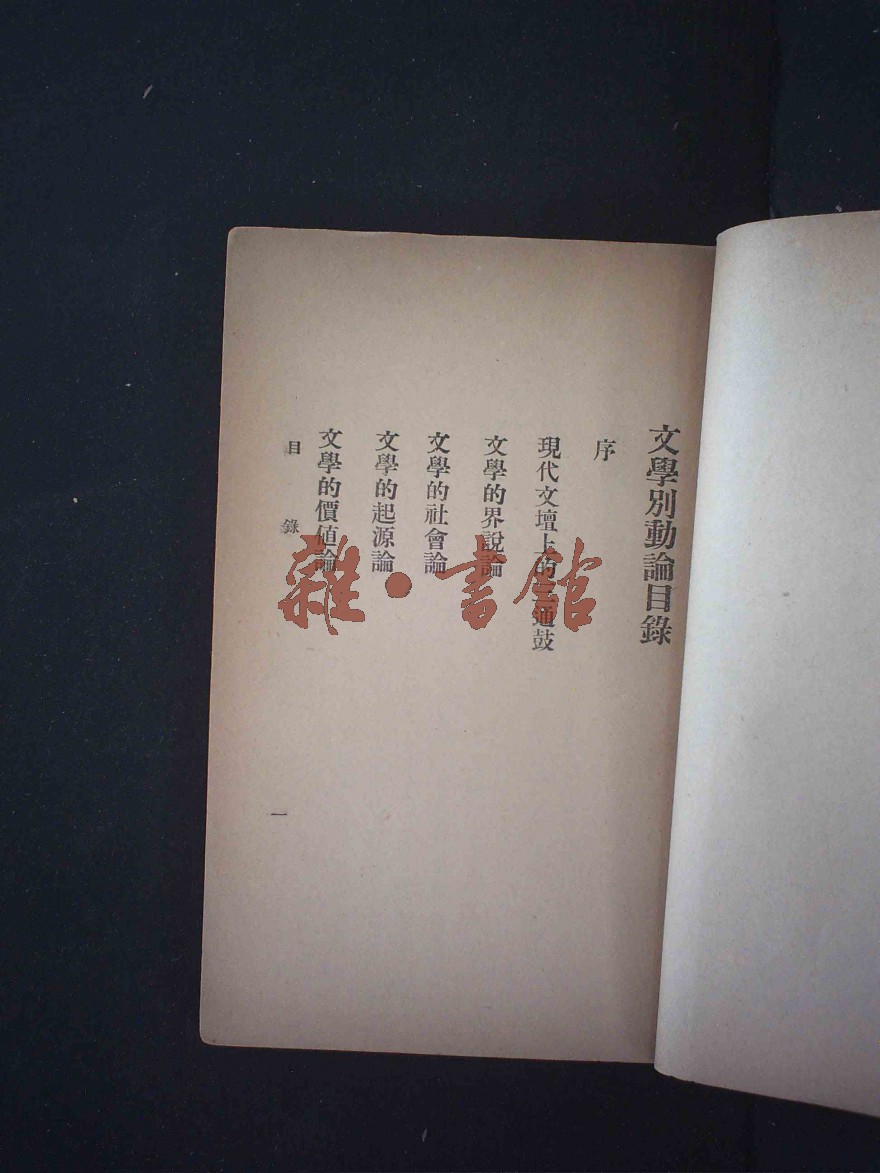 文學別動論目錄
序
現代文壇上的三通鼓
文學的界說論
文學的社會論
文學的起源論
文學的價値論
目錄
一
雜·書館